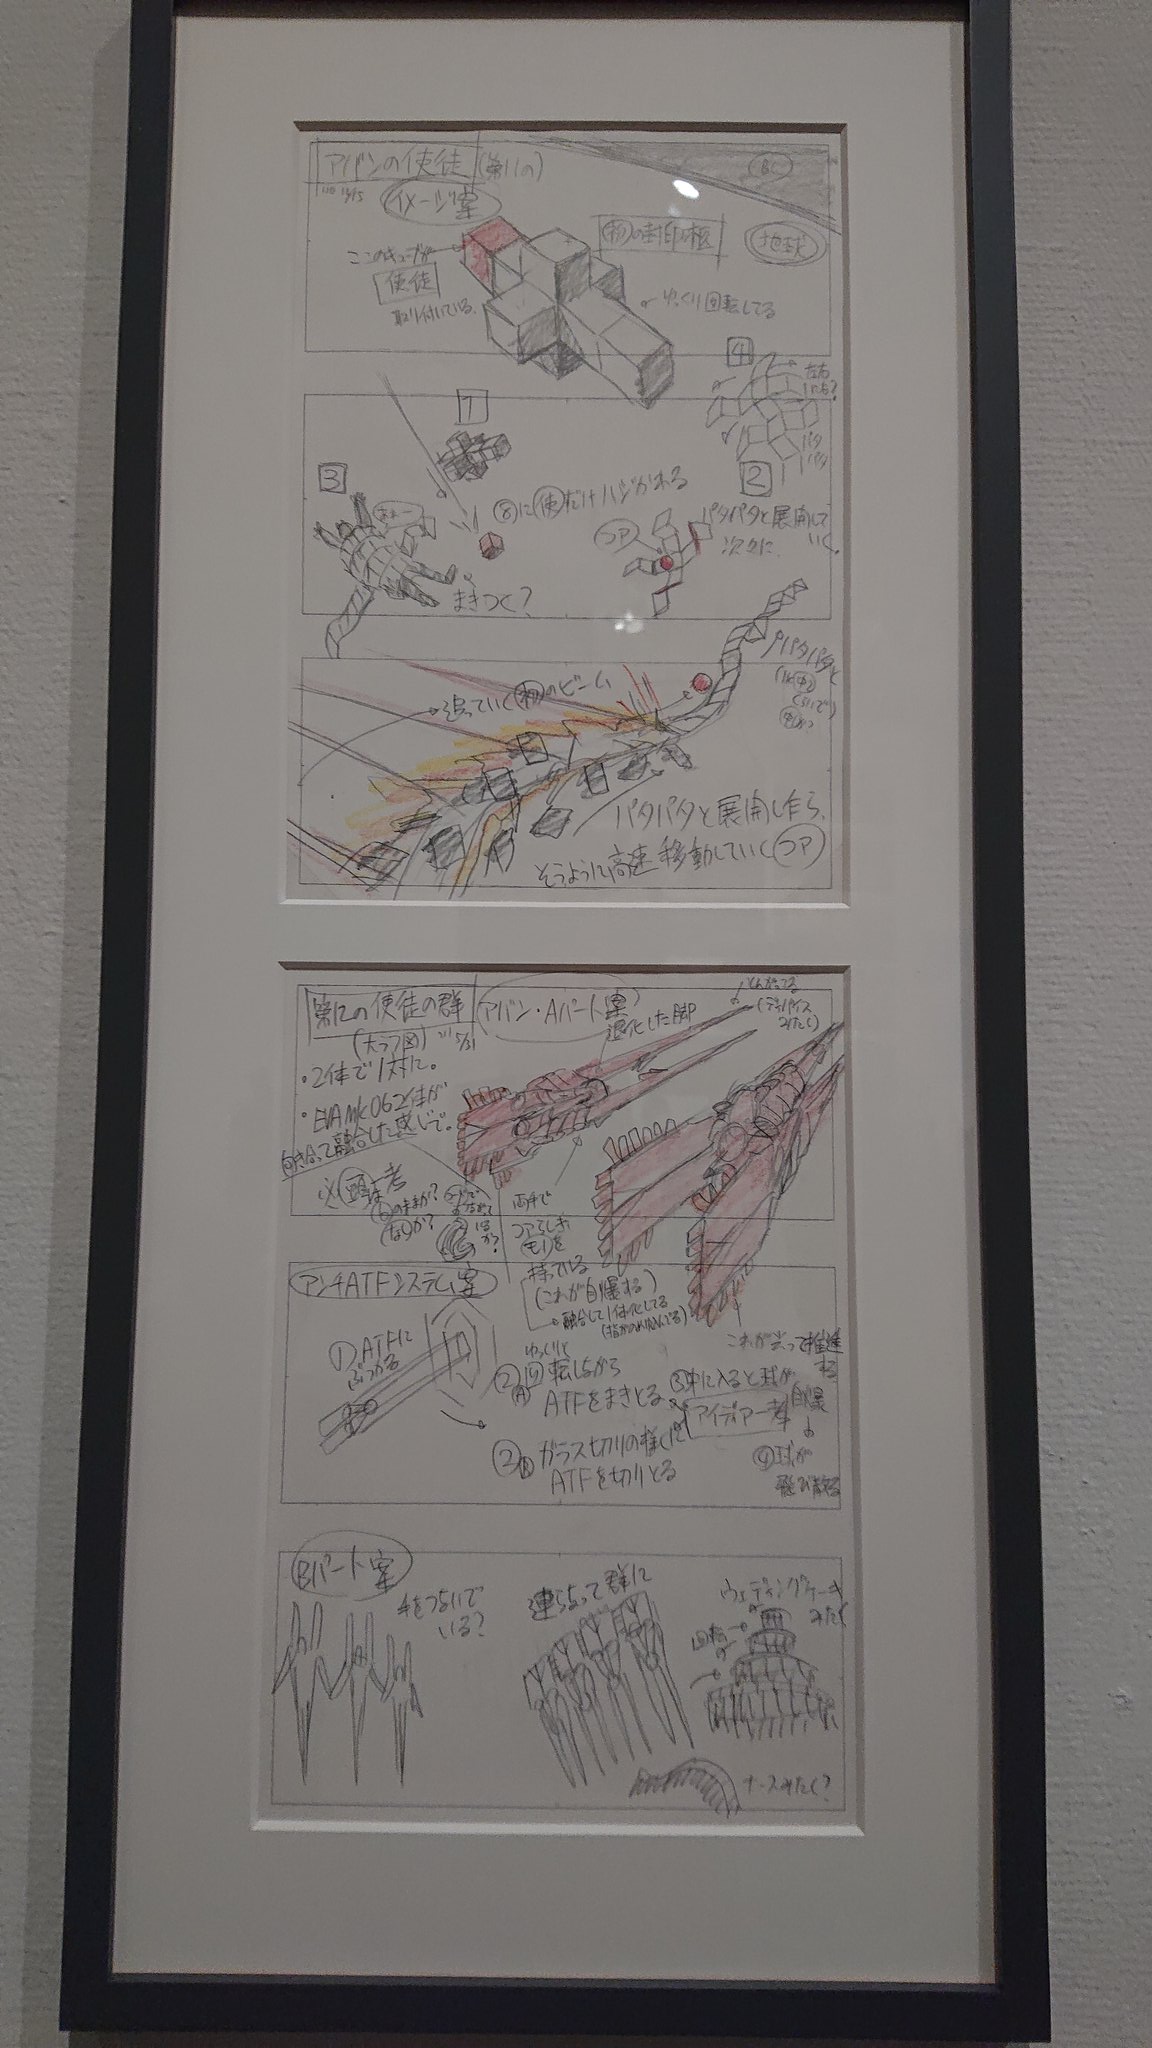 アバンの使徒(第11の)
イメージ案
BL
ここのキューブが
使徒
取り付いている。
初の封印柩
地球
ゆっくり回転してる
1
2
3
4
左右
に使だけハジかれる
まきつく?
コア
パタパタと展開して
いく。
次々に
追っていく初のビーム
パタパタと
パタパタと展開し乍ら、
そうように高速移動していくコア
第12の使徒の群
(大ラフ図)
5/31
アバン・Aパート案
退化した脚
とんがってる
・2体で1対に。
・EVAMK062体が
向き合って融合した感じで。
頭は考
のままか?
なしか?
両手で
コアらしき
モノを
持っている
(これが自爆する)
融合して1体化してる
これが光って推進
する
アンチATFシステム案
①ATFに
ぶつかる
ゆっくりと
②A回転しながら
ATFをまきとる
②Bガラス切りの様に
ATFを切りとる
③中に入ると球が
自爆
アイディア一考
④球が
飛び散る
Bパート案
手をつないで
いる?
連らなって群に
ウェディングケーキ
みたく
回転
ナースみたく?